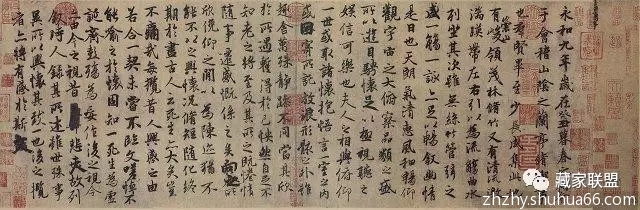 永和九年歲在癸丑暮春之初會
于會稽山陰之蘭亭脩稧事
也羣賢畢至少長咸集此地
有崇山峻領茂林脩竹又有清流激
湍暎帶左右引以為流觴曲水
列坐其次雖無絲竹管弦之
盛一觴一詠亦足以暢敘幽情
是日也天朗氣清惠風和暢仰
觀宇宙之大俯察品類之盛
所以遊目騁懷足以極視聽之
娛信可樂也夫人之相與俯仰
一世或取諸懷抱悟言一室之內
或因寄所託放浪形骸之外雖
趣舍萬殊靜躁不同當其欣
於所遇蹔得於己怏然自足不
知老之將至及其所之既惓情
隨事遷感慨係之矣向之所
欣俛仰之閒以為陳迹猶不
能不以之興懷況脩短隨化終
期於盡古人云死生亦大矣豈
不痛哉每攬昔人興感之由
若合一契未嘗不臨文嗟悼不
能喻之於懷固知一死生為虛
誕齊彭殤為妄作後之視今
亦由今之視昔悲夫故列
敘時人錄其所述雖世殊事
異所以興懷其致一也後之攬
者亦將有感於斯文
藏家联盟
zhzhyshuhua66.com